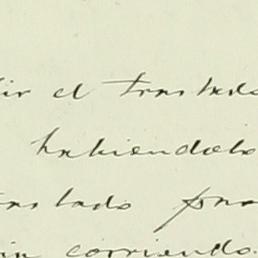 ir el traslado
habiendolo
traslado para
in corriendo.